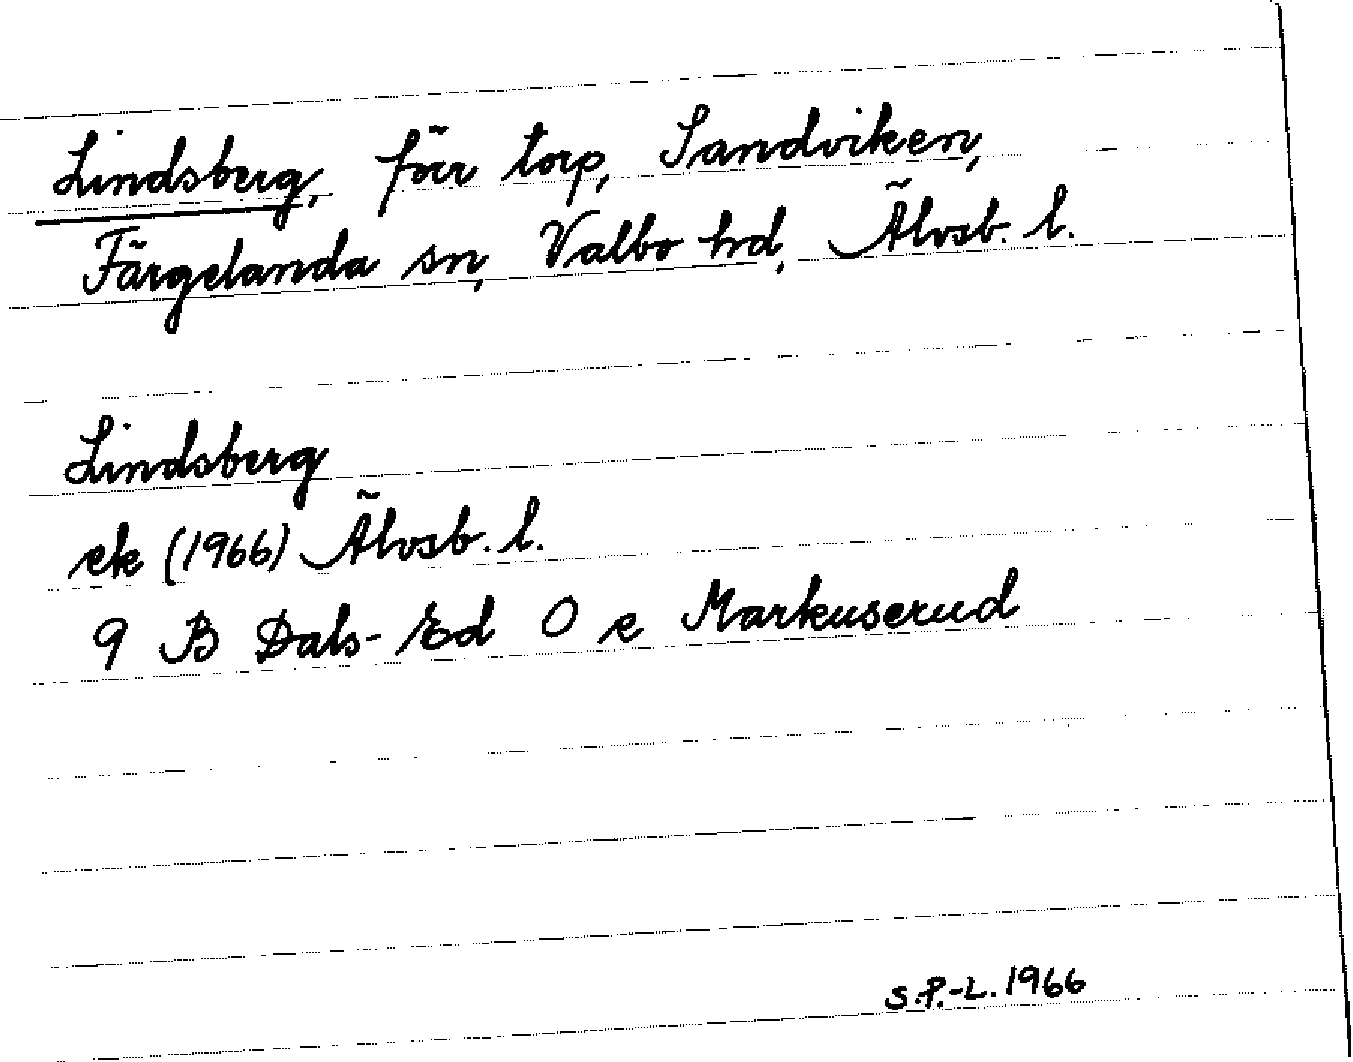 Lindsberg, förr torp, Sandviken,
Färgelanda sn, Valbo hd, Älvsb. l.
Lindsberg
ek (1966) Älvsb. l.
9 B Dals-Ed O e Markuserud
S.P.-L. 1966